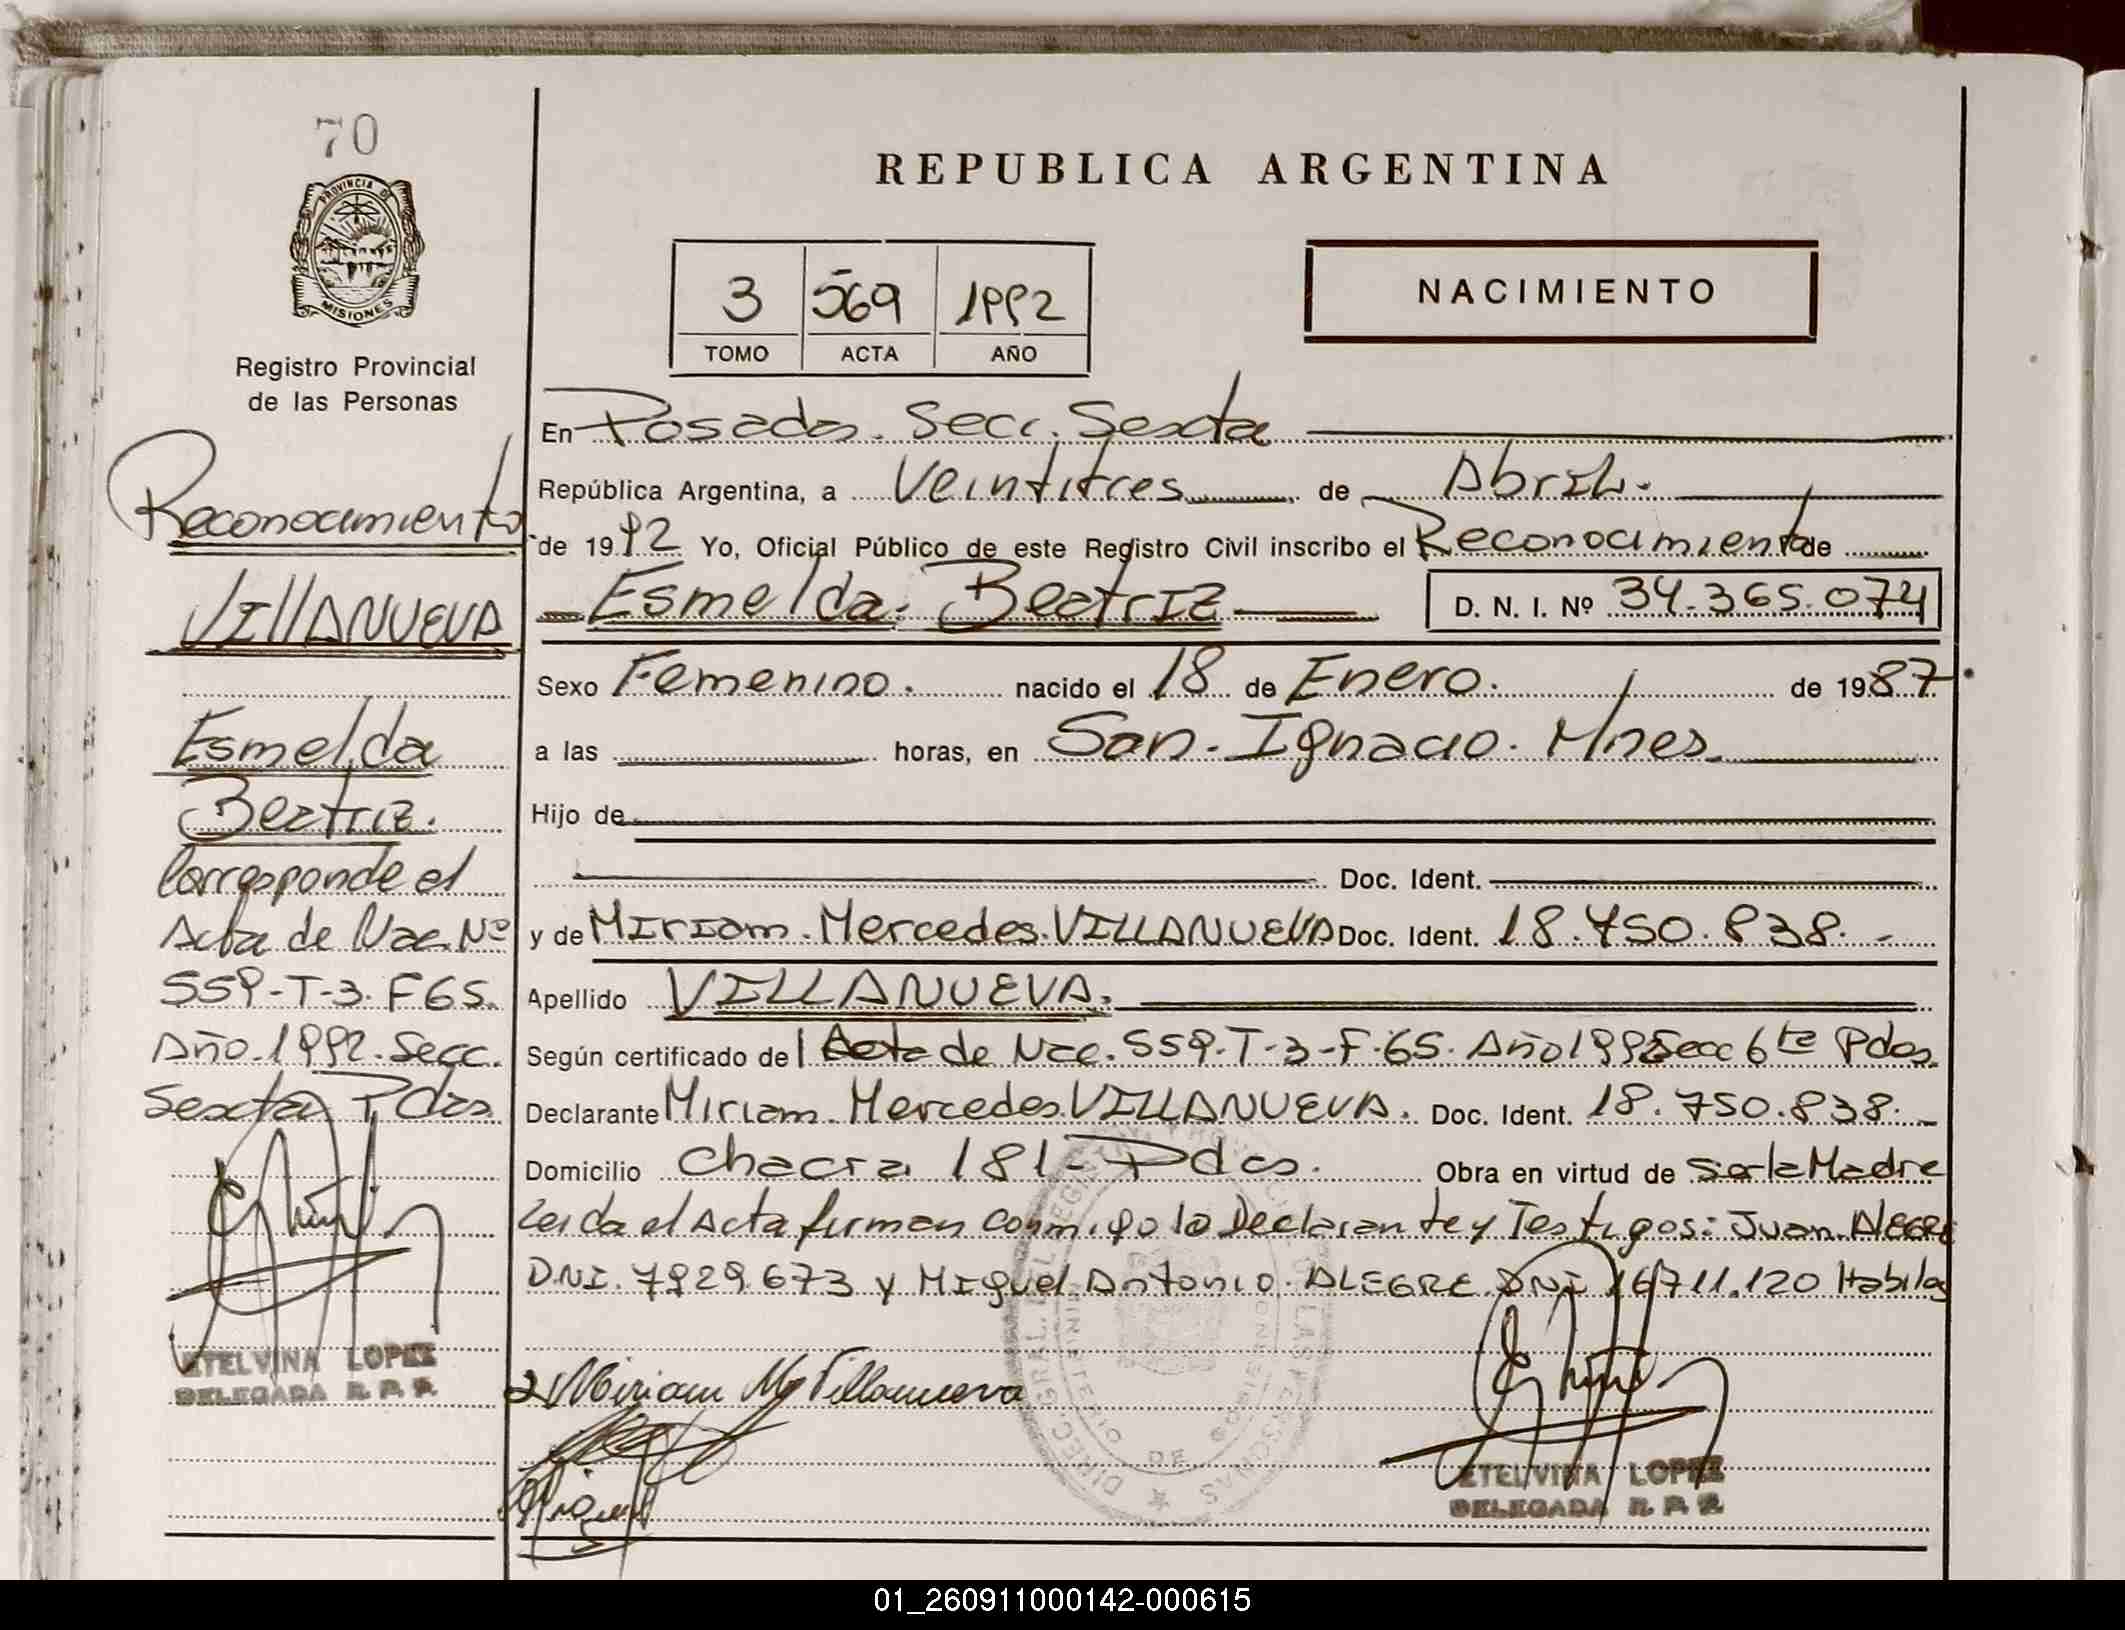 70
PROVINCIA DE
MISIONES
Registro Provincial
de las Personas
Reconocimiento
VILLANUEVA
Esmelda
Beatriz.
Corresponde el
Acta de Nac. Nº
559-T-3. F65.
Año.1992.Secc.
Sexta Pdas
ETELVINA LOPEZ
DELEGADA R. P. P.
REPUBLICA ARGENTINA
3 569 1992
TOMO ACTA AÑO
NACIMIENTO
En Posadas. Secc. Sexta
República Argentina, a Veintitres de Abril.
de 1992 Yo, Oficial Público de este Registro Civil inscribo el Reconocimiento de
Esmelda. Beatriz D. N. I. Nº 34.365.074
Sexo Femenino. nacido el 18 de Enero. de 1987
a las horas, en San. Ignacio. Mnes.
Hijo de
Doc. Ident.
y de Miriam. Mercedes. VILLANUEVA Doc. Ident. 18.750.838.
Apellido VILLANUEVA.
Según certificado de Acta de Nac. 559-T-3-F-65. Año 1992 Secc 6ta Pdas.
Declarante Miriam. Mercedes VILLANUEVA. Doc. Ident. 18.750.838.
Domicilio Chacra 181-Pdas. Obra en virtud de Ser la Madre
Leida el Acta firman conmigo la Declarante y Testigos: Juan. ALEGRE
DNI. 7929.673 y Miguel Antonio. ALEGRE. DNI 16711.120 Habiles
Miriam M Villanueva
Miguel
DIREC. GRAL. DEL REGISTRO PROVINCIAL DE LAS PERSONAS
MINISTERIO DE GOBIERNO
ETELVINA LOPEZ
DELEGADA R. P. P.
01_260911000142-000615